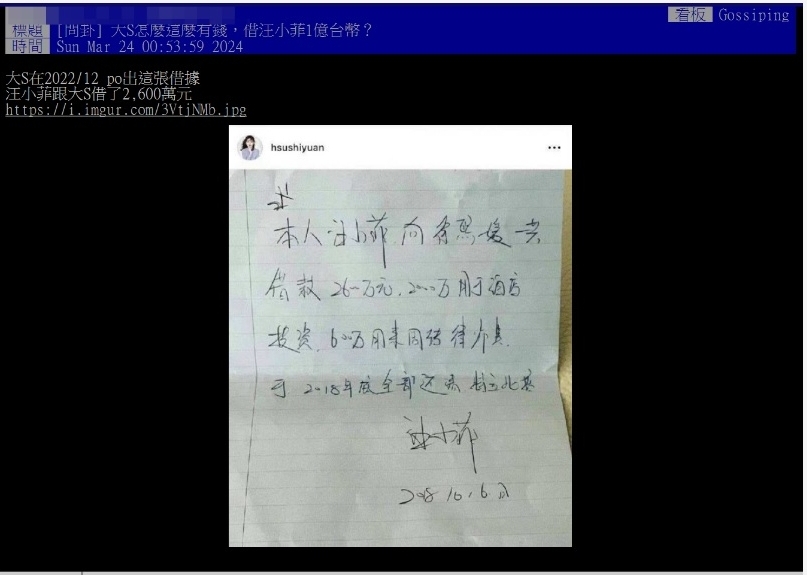 標題 [問卦] 大S怎麼這麼有錢，借汪小菲1億台幣？
看板 Gossiping
時間 Sun Mar 24 00:53:59 2024
大S在2022/12 po出這張借據
汪小菲跟大S借了2,600萬元
https://i.imgur.com/3VtjNMb.jpg
hsushiyuan
本人汪小菲向徐熙媛共
借款2600万元.2000万用于酒店
投资.600万用来周转
于2018年底全部还
汪小菲
2018.10.6日